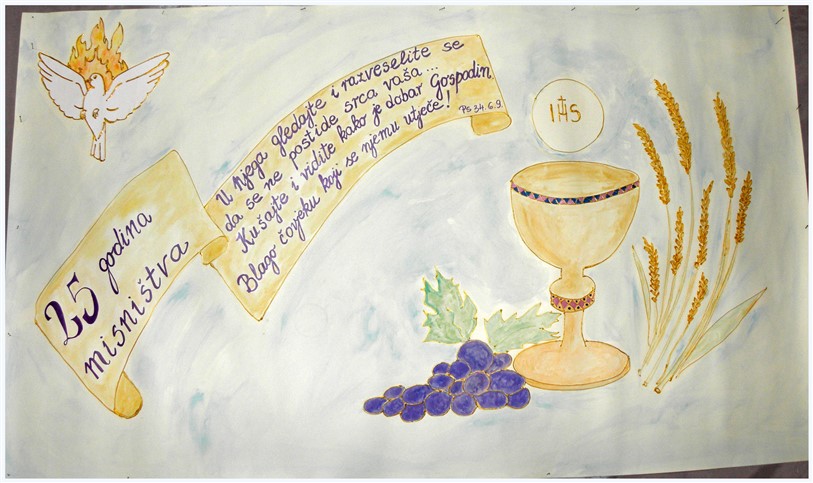 25 godina
misništva
U njega gledajte i razveselite se
da se ne postide srca vaša...
Kušajte i vidite kako je dobar Gospodin,
Blago čovjeku koji se njemu utječe!
Ps 34.6.9.
IHS